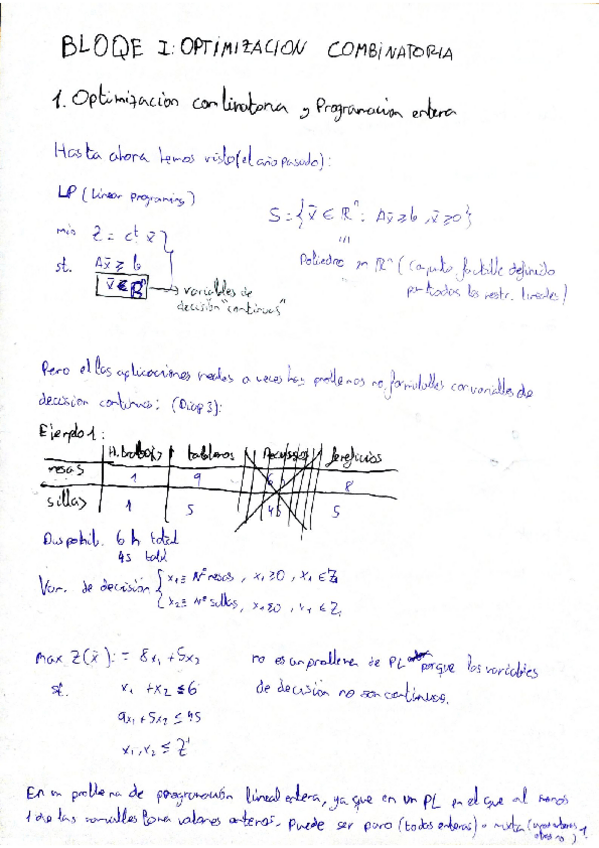 BLOQE I: OPTIMIZACION COMBINATORIA
1. Optimizacion combinatoria y Programacion entera
Hasta ahora hemos visto (el año pasado):
LP (Linear programing)
min Z = cᵗ x̄
st. Ax̄ ≥ b
x̄ ∈ ℝⁿ → variables de
decisión "continuas"
S = {x̄ ∈ ℝⁿ : Ax̄ ≥ b, x̄ ≥ 0}
Poliedro en ℝⁿ (Conjunto factible definido
por todas las restr. lineales)
Pero el las aplicaciones reales a veces hay problemas no formulables con variables de
decision continuas: (Diap 3):
Ejemplo 1:
H. trabajo tableros Recursos beneficios
mesas 1 9 8
sillas 1 5 45 5
Disponib. 6 h total
45 total
Var. de decisión { x₁ ≡ Nº mesas, x₁ ≥ 0, x₁ ∈ Z
x₂ ≡ Nº sillas, x₂ ≥ 0, x₂ ∈ Z
max Z(x̄) := 8x₁ + 5x₂
st. x₁ + x₂ ≤ 6
9x₁ + 5x₂ ≤ 45
x₁, x₂ ≤ Z⁺
no es un problema de PL porque las variables
de decisión no son continuas.
En un problema de programación lineal entera, ya que en un PL en el que al menos
1 de las variables toma valores enteros. Puede ser puro (todos enteras) o mixta (